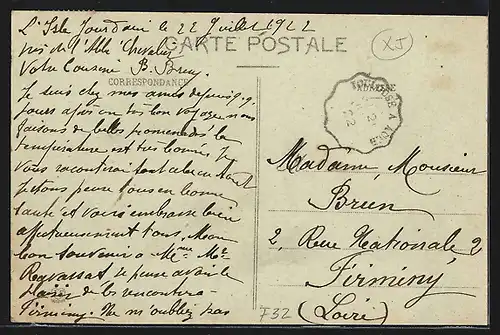 L'Isle Jourdain le 22 Juillet 1922
CARTE POSTALE
Votre Cousine B. Brun
CORRESPONDANCE
Je suis chez mes amis depuis
jours après un très bon voyage nous
faisons de belles promenades la
température est très bonne. Je
vous racontrait tout cela en
Je pense vous en bonne
santé et vous embrasse bien
affectueusement tous. Mon
bon souvenir a Mme Mr
Ravassat je pense avoir le
plaisir de les rencontra
Firminy. Ne m'oubliez pas
XJ
ADRESSE
TOULOUSE A
22
Madame, Monsieur
Brun
2, Rue Nationale 2
Firminy
(Loire)
F32